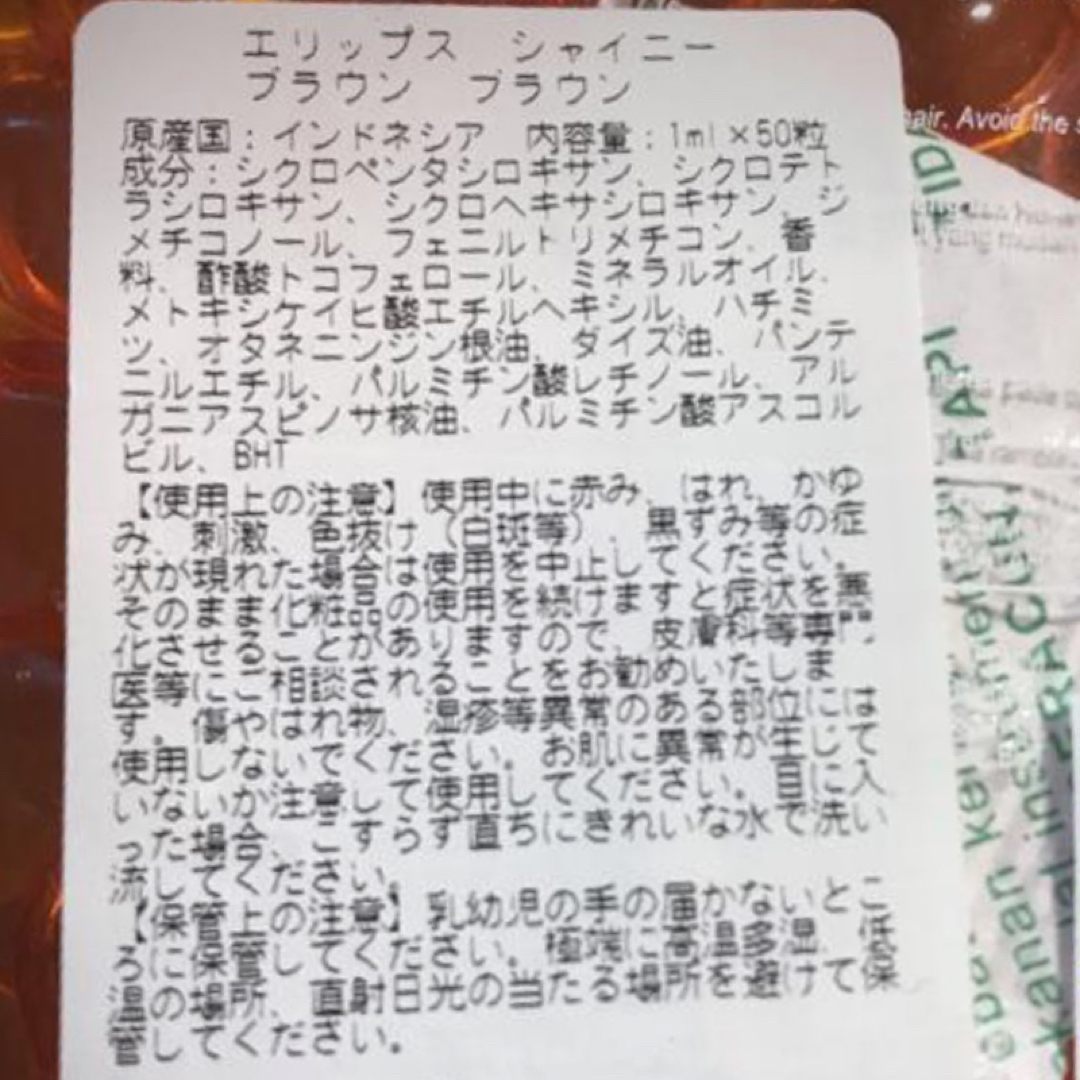 エリップス シャイニー
ブラウン ブラウン
原産国：インドネシア 内容量：1ml×50粒
成分：シクロペンタシロキサン、シクロテト
ラシロキサン、シクロヘキサシロキサン、ジ
メチコノール、フェニルトリメチコン、香
料、酢酸トコフェロール、ミネラルオイル、
メトキシケイヒ酸エチルヘキシル、ハチミ
ツ、オタネニンジン根油、ダイズ油、パンテ
ニルエチル、パルミチン酸レチノール、アル
ガニアスピノサ核油、パルミチン酸アスコル
ビル、BHT
【使用上の注意】使用中に赤み、はれ、かゆ
み、刺激、色抜け（白斑等）、黒ずみ等の症
状が現れた場合は使用を中止してください。
そのまま化粧品の使用を続けますと症状を悪
化させることがありますので、皮膚科等専門
医等にご相談されることをお勧めいたしま
す。傷やはれ物、湿疹等異常のある部位には
使用しないでください。お肌に異常が生じて
いないか注意して使用してください。目に入
った場合、こすらず直ちにきれいな水で洗い
流してください。
【保管上の注意】乳幼児の手の届かないとこ
ろに保管してください。極端に高温多湿、低
温の場所、直射日光の当たる場所を避けて保
管してください。
air. Avoid the